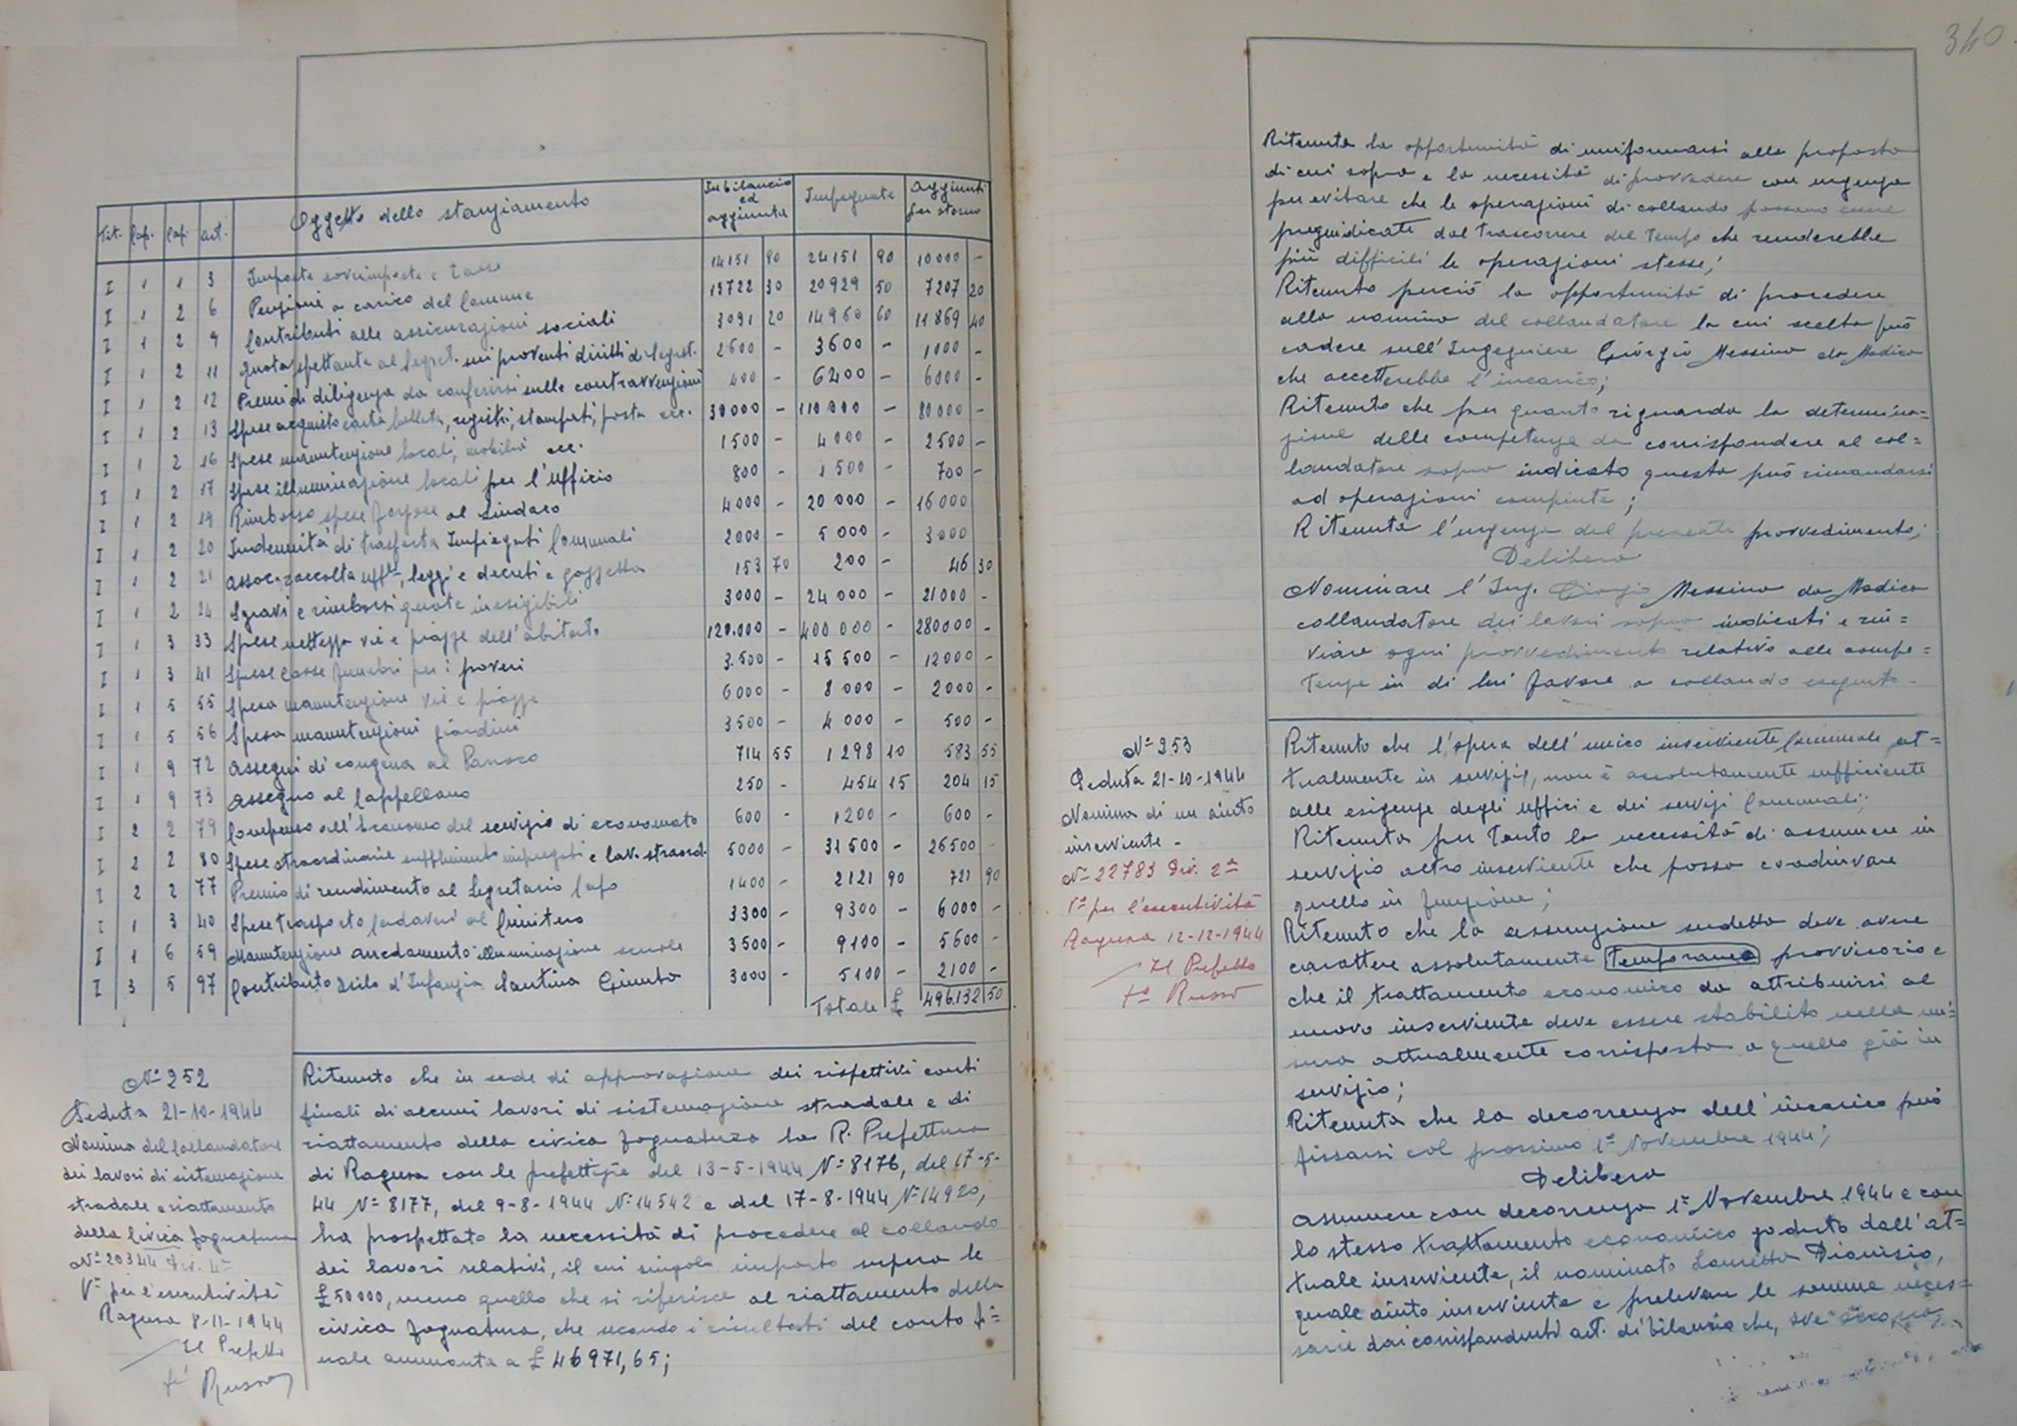 340
Tit. Cap. Cap. art. Oggetto dello stanziamento In bilancio ed aggiunte Impegnate Aggiunti per storno
I 1 1 3 Imposte sovrimposte e tasse 14151 90 24151 90 10000 -
I 1 2 6 Pensioni a carico del Comune 13722 30 20929 50 7207 20
I 1 2 9 Contributi alle assicurazioni sociali 3091 20 14960 60 11869 40
I 1 2 11 Quota spettante al Segret. sui proventi diritti di Segret. 2600 - 3600 - 1000 -
I 1 2 12 Premi di diligenza da conferirsi sulle contravvenzioni 400 - 6400 - 6000 -
I 1 2 13 Spese acquisto carta bollata, registri, stampati, posta ecc. 30000 - 110000 - 80000 -
I 1 2 16 Spese manutenzione locali, mobilio ecc. 1500 - 4000 - 2500 -
I 1 2 17 Spese illuminazione locali per l'ufficio 800 - 1500 - 700 -
I 1 2 19 Rimborso spese forzose al Sindaco 4000 - 20000 - 16000
I 1 2 20 Indennità di trasferta Impiegati Comunali 2000 - 5000 - 3000
I 1 2 21 Assoc. raccolta uff.le, leggi e decreti e gazzetta 153 70 200 - 46 30
I 1 2 24 Sgravi e rimborsi quote inesigibili 3000 - 24000 - 21000 -
I 1 3 33 Spese nettezza vie e piazze dell'abitato 120.000 - 400000 - 280000 -
I 1 3 41 Spese casse funebri per i poveri 3.500 - 15500 - 12000 -
I 1 5 55 Spesa manutenzione vie e piazze 6000 - 8000 - 2000 -
I 1 5 56 Spesa manutenzioni giardini 3500 - 4000 - 500 -
I 1 9 72 Assegni di congrua al Parroco 714 55 1298 10 583 55
I 1 9 73 Assegno al Cappellano 250 - 454 15 204 15
I 2 2 79 Compenso all'Economo del servizio di economato 600 - 1200 - 600 -
I 2 2 80 Spese straordinarie supplimento impiegati e lav. straord. 5000 - 31500 - 26500 -
I 2 2 77 Premio di rendimento al Segretario Capo 1400 - 2121 90 721 90
I 1 3 40 Spese trasporto cadaveri al Cimitero 3300 - 9300 - 6000 -
I 1 6 59 Manutenzione arredamento illuminazione scuole 3500 - 9100 - 5600 -
I 3 5 97 Contributo Asilo d'Infanzia Santina Giunta 3000 - 5100 - 2100 -
Totale £ 496.132 50
N° 252
Seduta 21-10-1944
Nomina del Collaudatore
dei lavori di sistemazione
stradale e riattamento
della Civica fognatura
N° 20344 Div. 4ª
V° per l'esecutività
Ragusa 8-11-1944
Il Prefetto
f° Russo
Ritenuto che in sede di approvazione dei rispettivi conti
finali di alcuni lavori di sistemazione stradale e di
riattamento della civica fognatura la R. Prefettura
di Ragusa con le prefettizie del 13-5-1944 N° 8176, del 17-5-
44 N° 8177, del 9-8-1944 N° 14542 e del 17-8-1944 N° 14920,
ha prospettato la necessità di procedere al collaudo
dei lavori relativi, il cui singolo importo supera le
£ 50000, meno quello che si riferisce al riattamento della
civica fognatura, che secondo i risultati del conto fi=
nale ammonta a £ 46971,65;
Ritenuta la opportunità di uniformarsi alla proposta
di cui sopra e la necessità di provvedere con urgenza
per evitare che le operazioni di collaudo possano essere
pregiudicate dal trascorrere del tempo che renderebbe
più difficili le operazioni stesse;
Ritenuto perciò la opportunità di procedere
alla nomina del collaudatore la cui scelta può
cadere sull'Ingegniere Giorgio Messina da Modica
che accetterebbe l'incarico;
Ritenuto che per quanto riguarda la determina=
zione delle competenze da corrispondere al col=
laudatore sopra indicato questa può rimandarsi
ad operazioni compiute;
Ritenuta l'urgenza del presente provvedimento;
Delibera
Nominare l'Ing. Giorgio Messina da Modica
collaudatore dei lavori sopra indicati e rin=
viare ogni provvedimento relativo alle compe=
tenze in di lui favore a collaudo eseguito -
N° 253
Seduta 21-10-1944
Nomina di un aiuto
inserviente -
N° 22783 Div. 2ª
V° per l'esecutività
Ragusa 12-12-1944
Il Prefetto
f° Russo
Ritenuto che l'opera dell'unico inserviente Comunale at=
tualmente in servizio, non è assolutamente sufficiente
alle esigenze degli uffici e dei servizi Comunali;
Ritenuta per tanto la necessità di assumere in
servizio altro inserviente che possa coadiuvare
quello in funzione;
Ritenuto che la assunzione sudetta deve avere
carattere assolutamente temporaneo provvisorio e
che il trattamento economico da attribuirsi al
nuovo inserviente deve essere stabilito nella mi=
sura attualmente corrisposta a quello già in
servizio;
Ritenuta che la decorrenza dell'incarico può
fissarsi col prossimo 1° Novembre 1944;
Delibera
Assumere con decorrenza 1° Novembre 1944 e con
lo stesso trattamento economico goduto dall'at=
tuale inserviente, il nominato Lauretta Dionisio,
quale aiuto inserviente e prelevare le somme neces=
sarie dai corrispondenti art. di bilancio che, ove